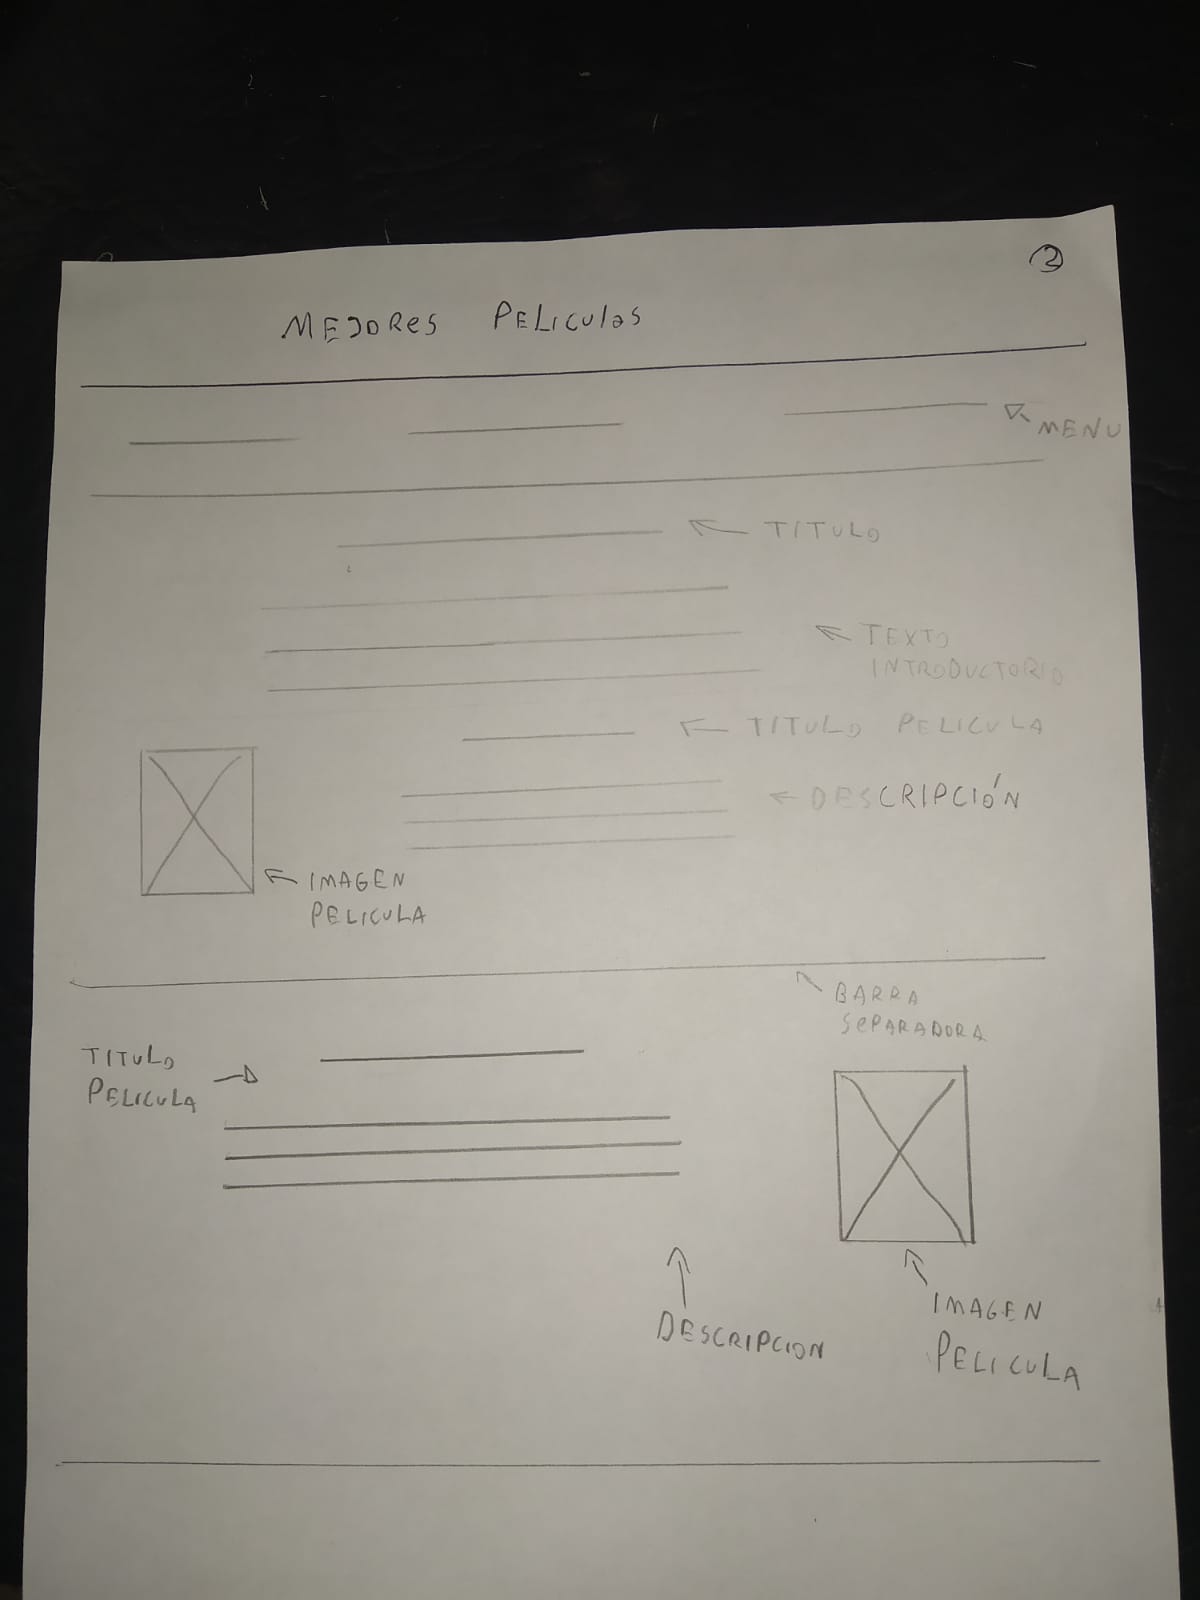 2
MEJORES PELICULAS
MENU
TITULO
TEXTO
INTRODUCTORIO
TITULO PELICULA
DESCRIPCIÓN
IMAGEN
PELICULA
BARRA
SEPARADORA
TITULO
PELICULA
DESCRIPCION
IMAGEN
PELICULA